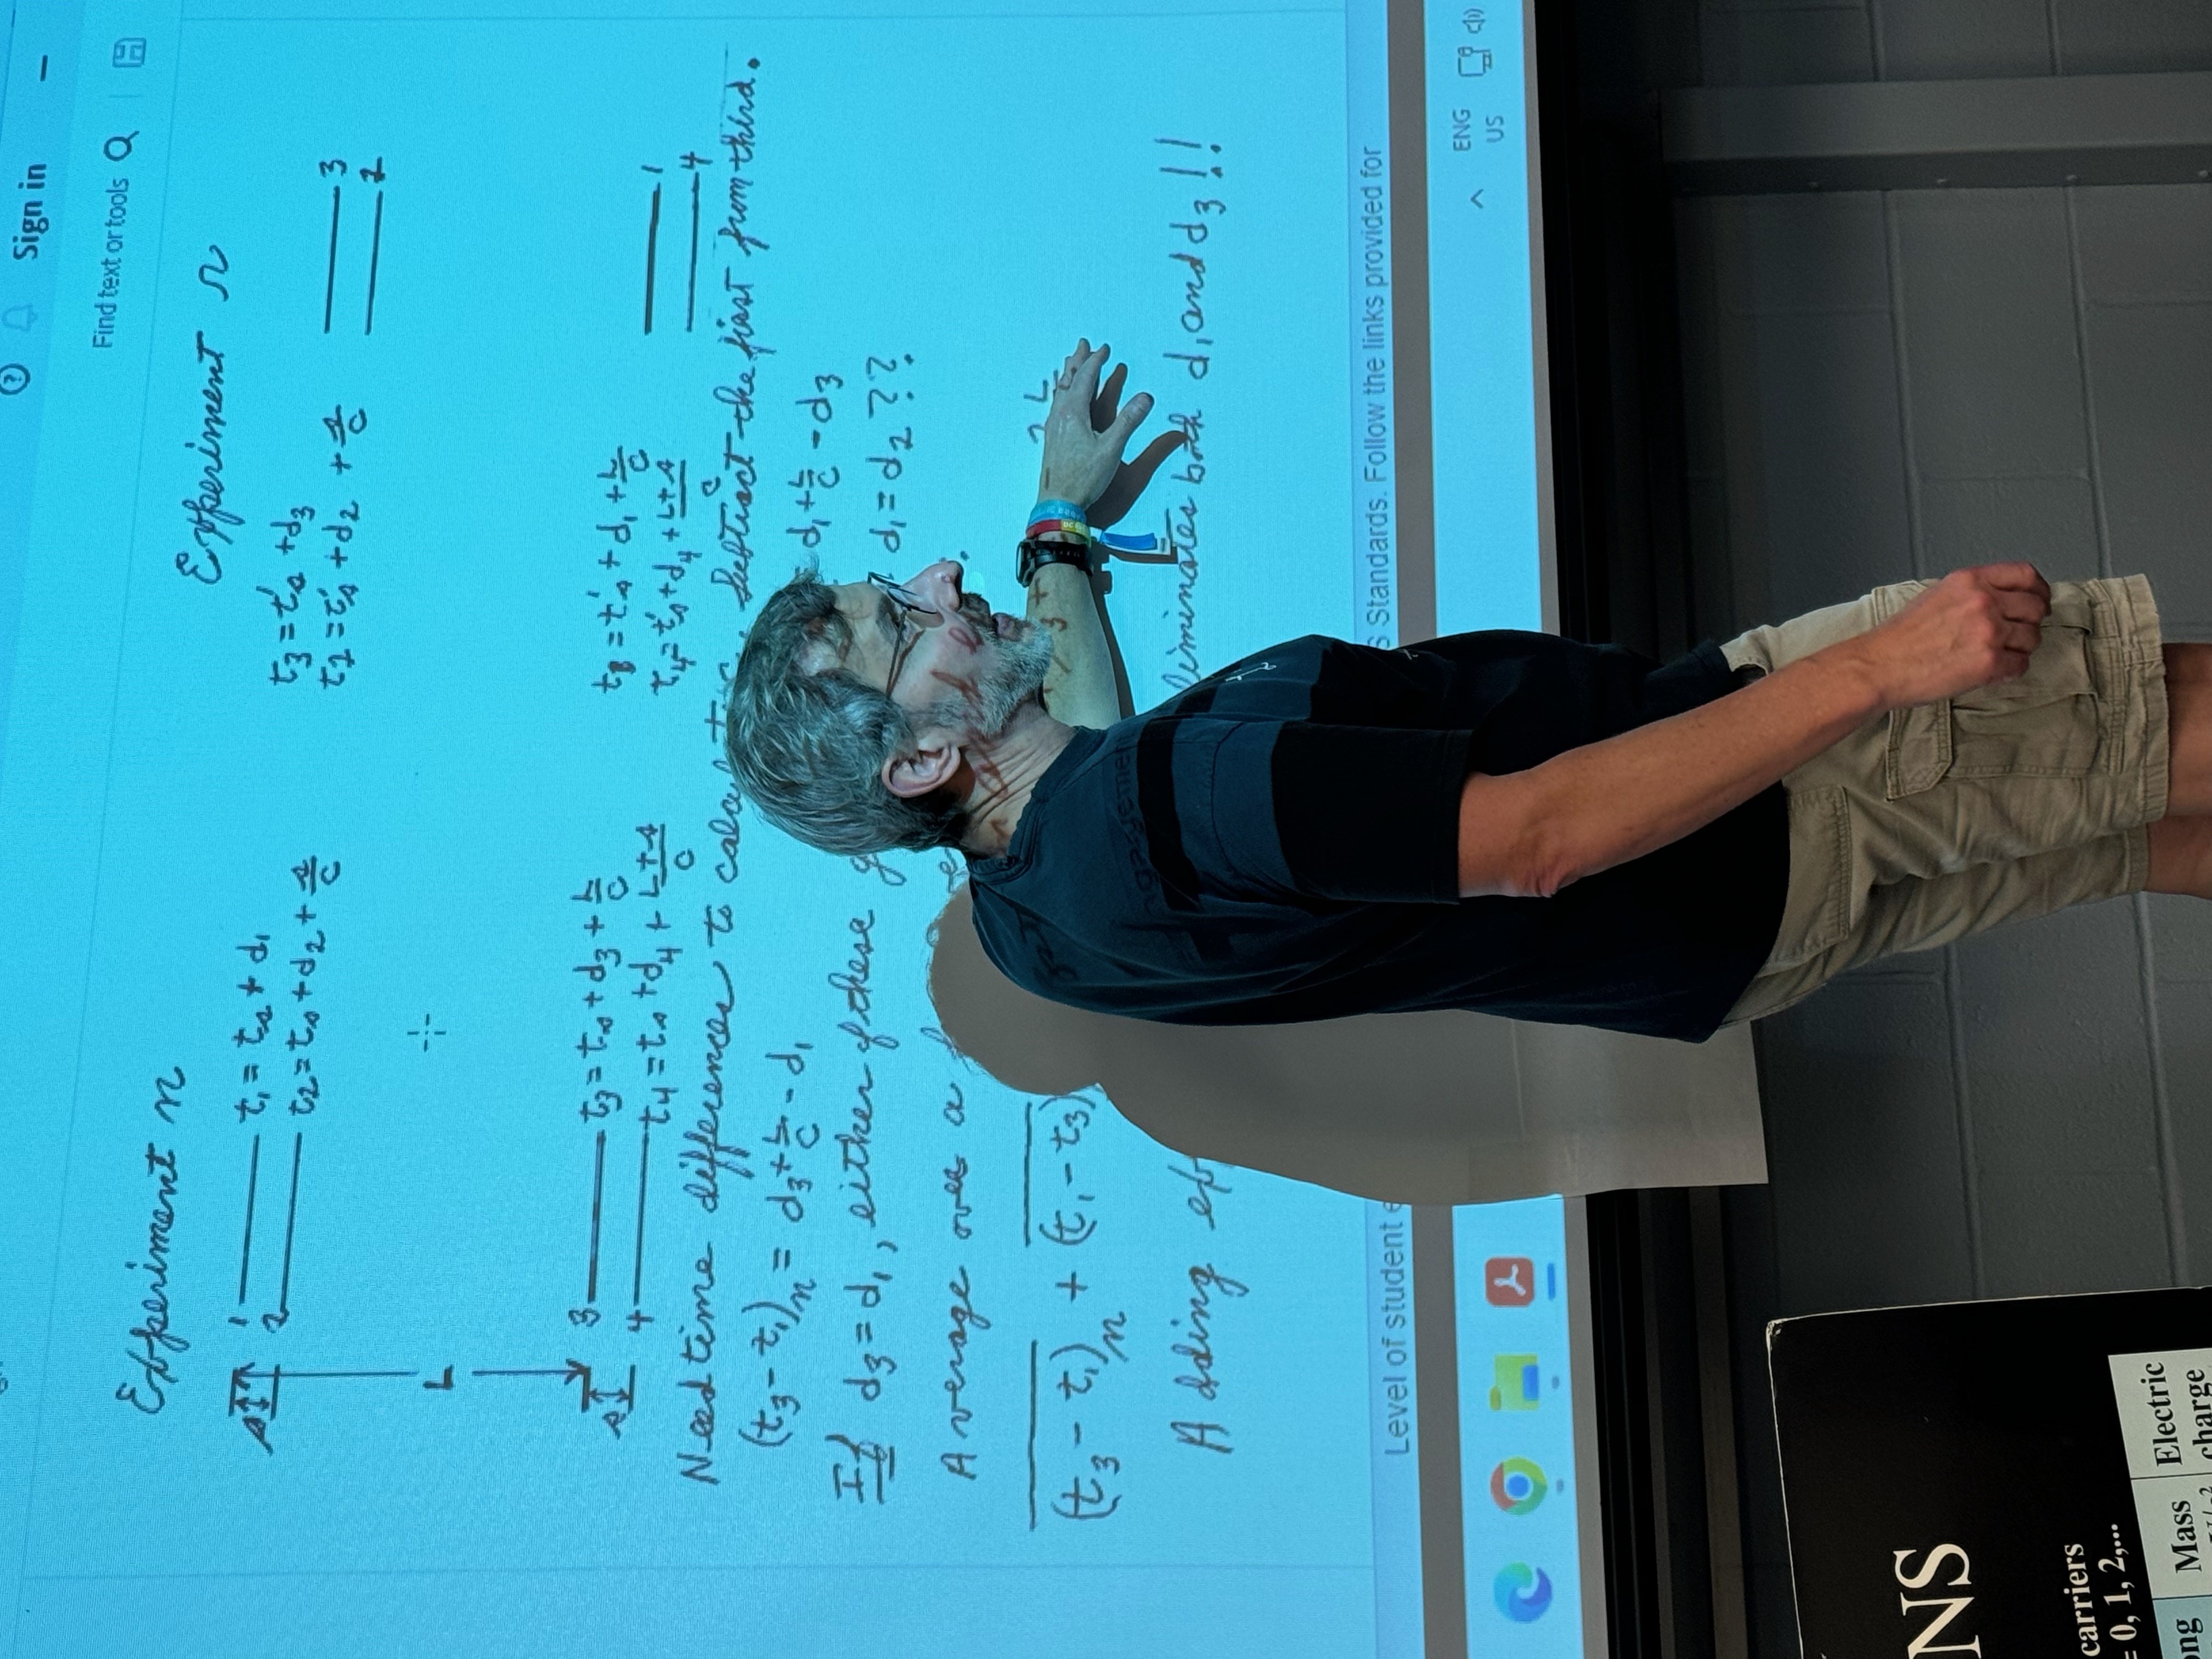 Sign in
Find text or tools
Experiment n
Experiment r
1 t₁ = tₛ + d₁
2 t₂ = tₛ + d₂ + s/c
t₃ = t'ₛ + d₃
t₂ = t'ₛ + d₂ + s/c
3
2
s
L
s
3 t₃ = tₛ + d₃ + L/c
4 t₄ = tₛ + d₄ + (L+s)/c
t₁ = t'ₛ + d₁ + L/c
t₄ = t'ₛ + d₄ + (L+s)/c
1
4
Need time differences to calculate c. Subtract the first from third.
(t₃ - t₁)ₙ = d₃ + L/c - d₁
d₁ + L/c - d₃
If d₃ = d₁, either of these
d₁ = d₂ ??
Average over a
(t₃ - t₁)ₙ + (t₁ - t₃)
2 L
Adding
eliminates both d₁ and d₃!!
Level of student
Standards. Follow the links provided for
ENG
US
NS
carriers
= 0, 1, 2,...
Mass
Electric
charge